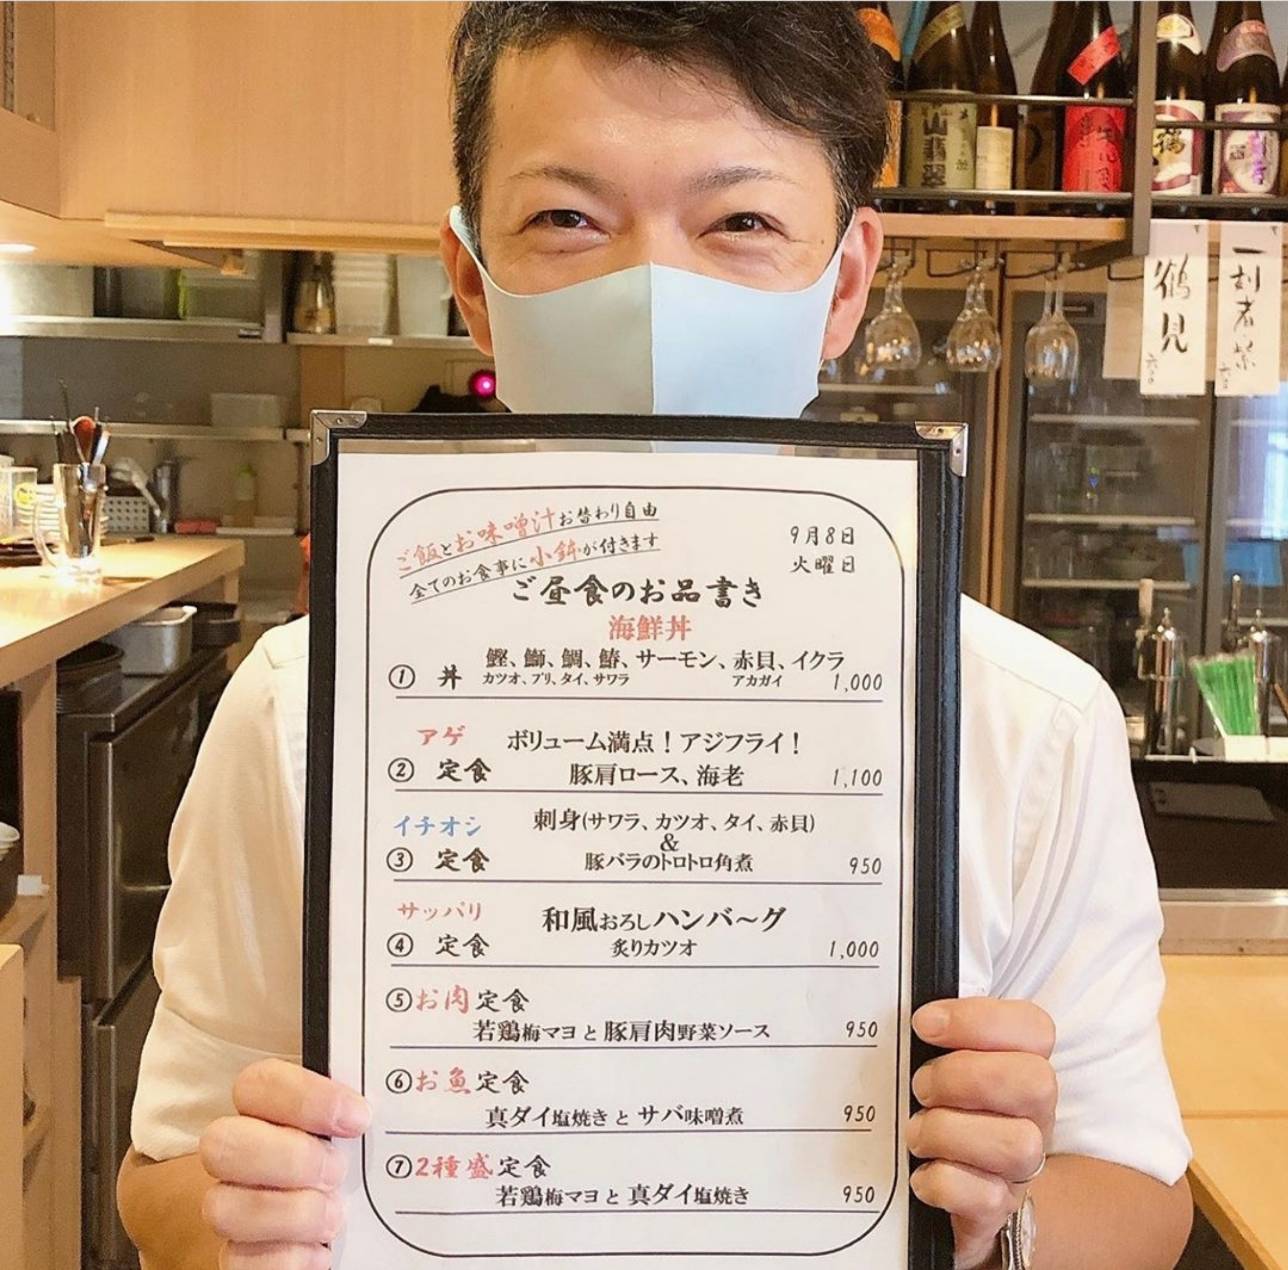 山翡翠
鶴
鶴見
一刻者 紫
ご飯とお味噌汁お替わり自由
全てのお食事に小鉢が付きます
9月8日
火曜日
ご昼食のお品書き
海鮮丼
① 丼 鰹、鰤、鯛、鰆、サーモン、赤貝、イクラ
カツオ、ブリ、タイ、サワラ アカガイ 1,000
アゲ ボリューム満点！アジフライ！
② 定食 豚肩ロース、海老 1,100
イチオシ 刺身(サワラ、カツオ、タイ、赤貝)
&
③ 定食 豚バラのトロトロ角煮 950
サッパリ 和風おろしハンバ〜グ
④ 定食 炙りカツオ 1,000
⑤お肉定食
若鶏梅マヨと豚肩肉野菜ソース 950
⑥お魚定食
真ダイ塩焼きとサバ味噌煮 950
⑦2種盛定食
若鶏梅マヨと真ダイ塩焼き 950